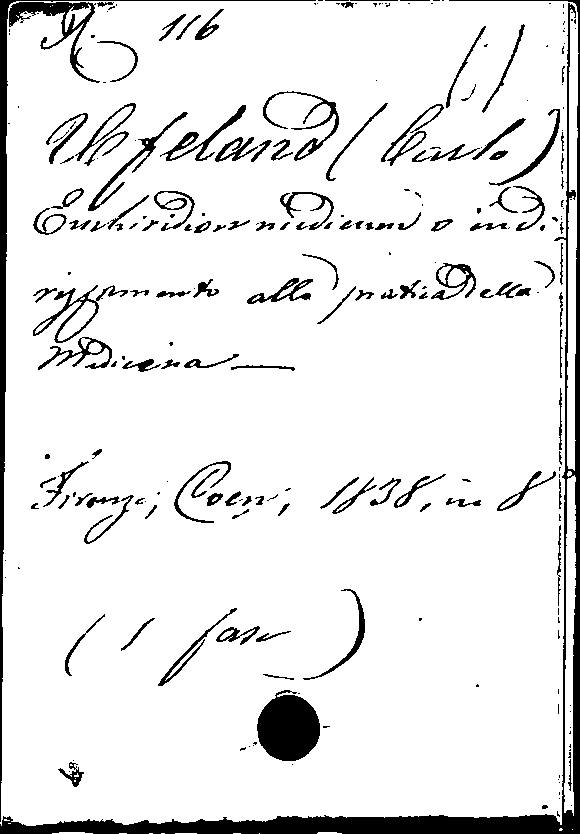 R. 116
Ufeland (Carlo)
Enchiridion medicum o indi-
rizzamento alla pratica della
Medicina —
Firenze, Coen, 1838, in 8
(1 fasc)